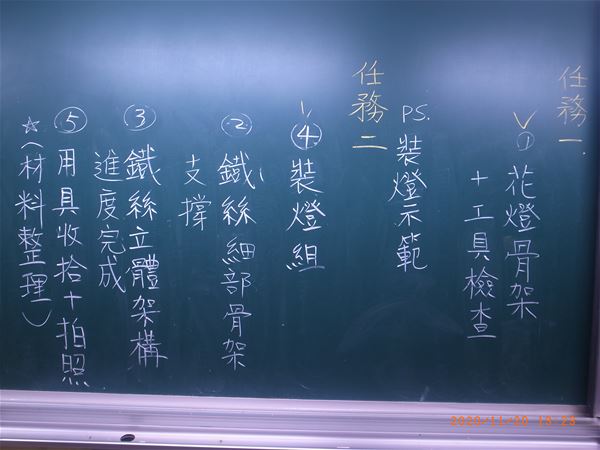 任務一.
①花燈骨架
+工具檢查
PS.裝燈示範
任務二
④裝燈組
②鐵絲細部骨架
支撐
③鐵絲立體架構
進度完成
⑤用具收拾+拍照
☆(材料整理)